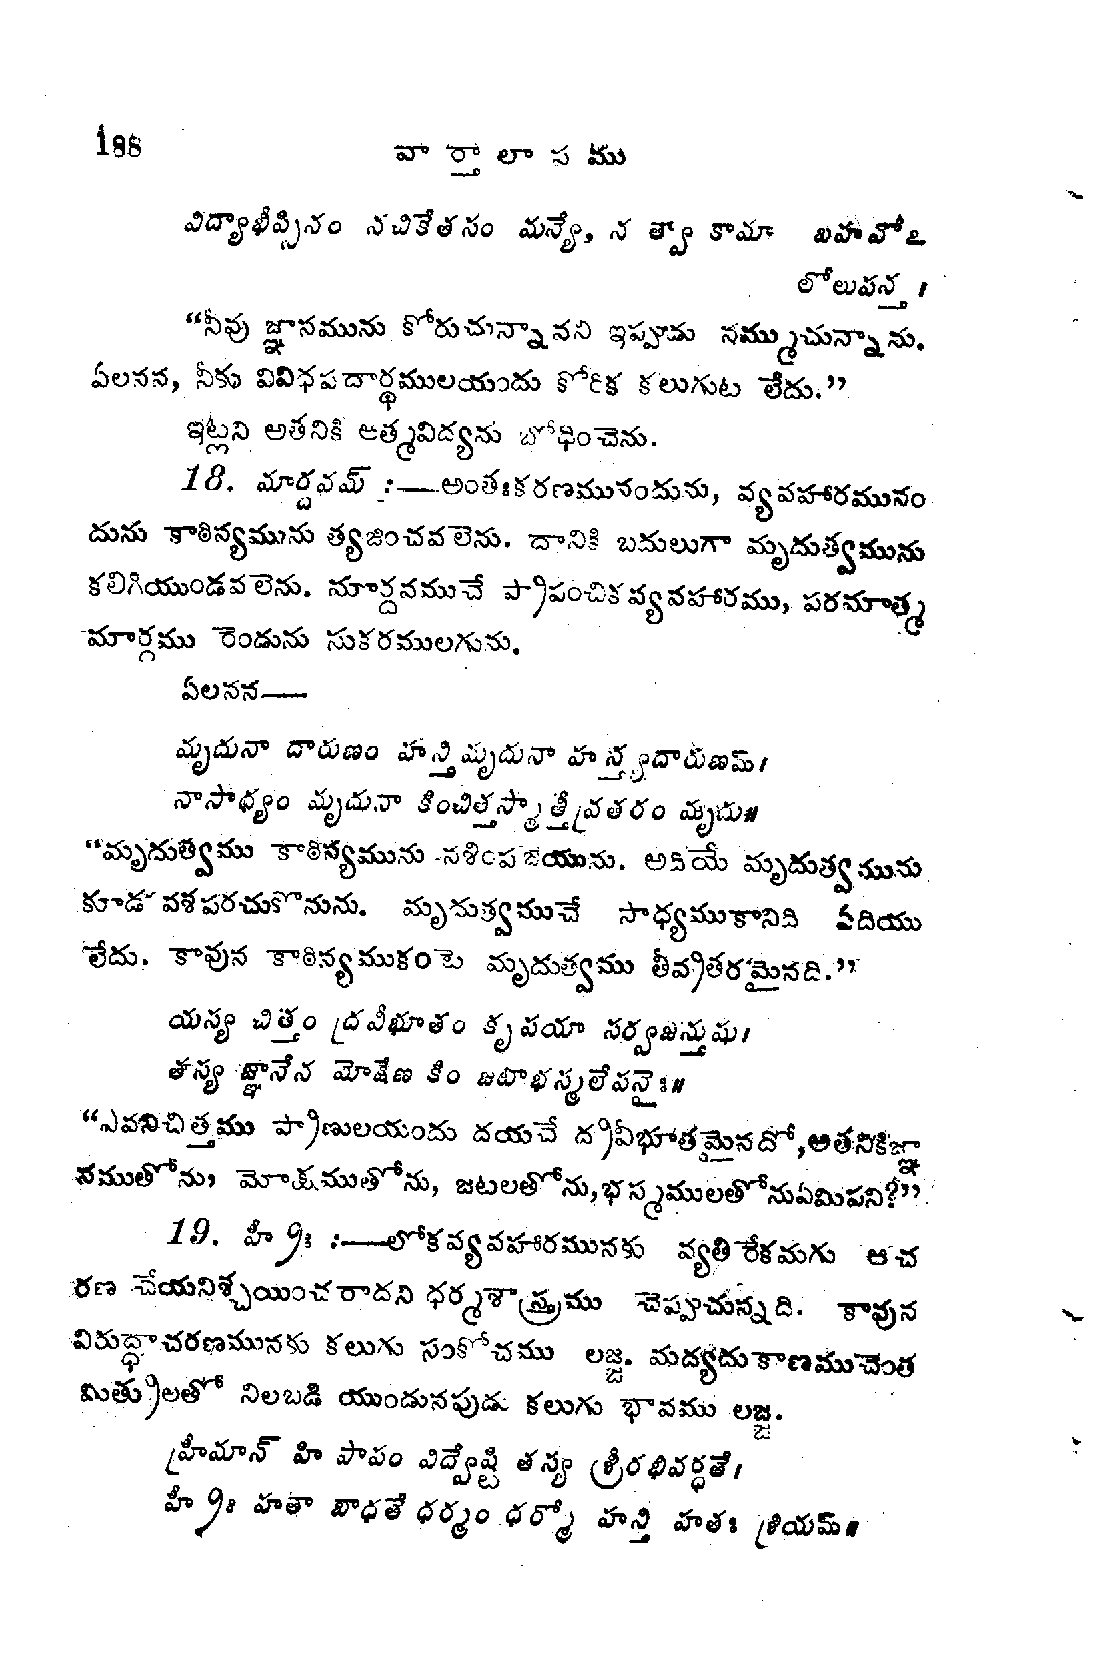 188
వార్తాలాపము
విద్యాభీప్సినం నచికేతసం మన్యే, న త్వా కామా బహవోఽ
లోలుపన్త ।
“నీవు జ్ఞానమును కోరుచున్నావని ఇప్పుడు నమ్ముచున్నాను.
ఏలనన, నీకు వివిధపదార్థములయందు కోరిక కలుగుట లేదు.”
ఇట్లని అతనికి ఆత్మవిద్యను బోధించెను.
18. మార్దవమ్ :—అంతఃకరణమునందును, వ్యవహారమునం
దును కాఠిన్యమును త్యజించవలెను. దానికి బదులుగా మృదుత్వమును
కలిగియుండవలెను. మార్దవముచే ప్రాపంచికవ్యవహారము, పరమాత్మ
మార్గము రెండును సుకరములగును.
ఏలనన—
మృదునా దారుణం హన్తి మృదునా హన్త్యదారుణమ్।
నాసాధ్యం మృదునా కించిత్తస్మాత్తీవ్రతరం మృదు॥
“మృదుత్వము కాఠిన్యమును నశింపజేయును. అదియే మృదుత్వమును
కూడ వశపరచుకొనును. మృదుత్వముచే సాధ్యముకానిది ఏదియు
లేదు. కావున కాఠిన్యముకంటె మృదుత్వము తీవ్రతరమైనది.”
యస్య చిత్తం ద్రవీభూతం కృపయా సర్వజన్తుషు।
తస్య జ్ఞానేన మోక్షేణ కిం జటాభస్మలేపనైః॥
“ఎవనిచిత్తము ప్రాణులయందు దయచే ద్రవీభూతమైనదో, అతనికిజ్ఞా
నముతోను, మోక్షముతోను, జటలతోను, భస్మములతోనుఏమిపని?”
19. హ్రీః :—లోకవ్యవహారమునకు వ్యతిరేకమగు ఆచ
రణ చేయనిశ్చయించరాదని ధర్మశాస్త్రము చెప్పుచున్నది. కావున
విరుద్ధాచరణమునకు కలుగు సంకోచము లజ్జ. మద్యదుకాణముచెంత
మిత్రులతో నిలబడి యుండునపుడు కలుగు భావము లజ్జ.
హ్రీమాన్ హి పాపం విద్వేష్టి తస్య శ్రీరభివర్ధతే।
హ్రీః హతా బాధతే ధర్మం ధర్మో హన్తి హతః శ్రియమ్॥